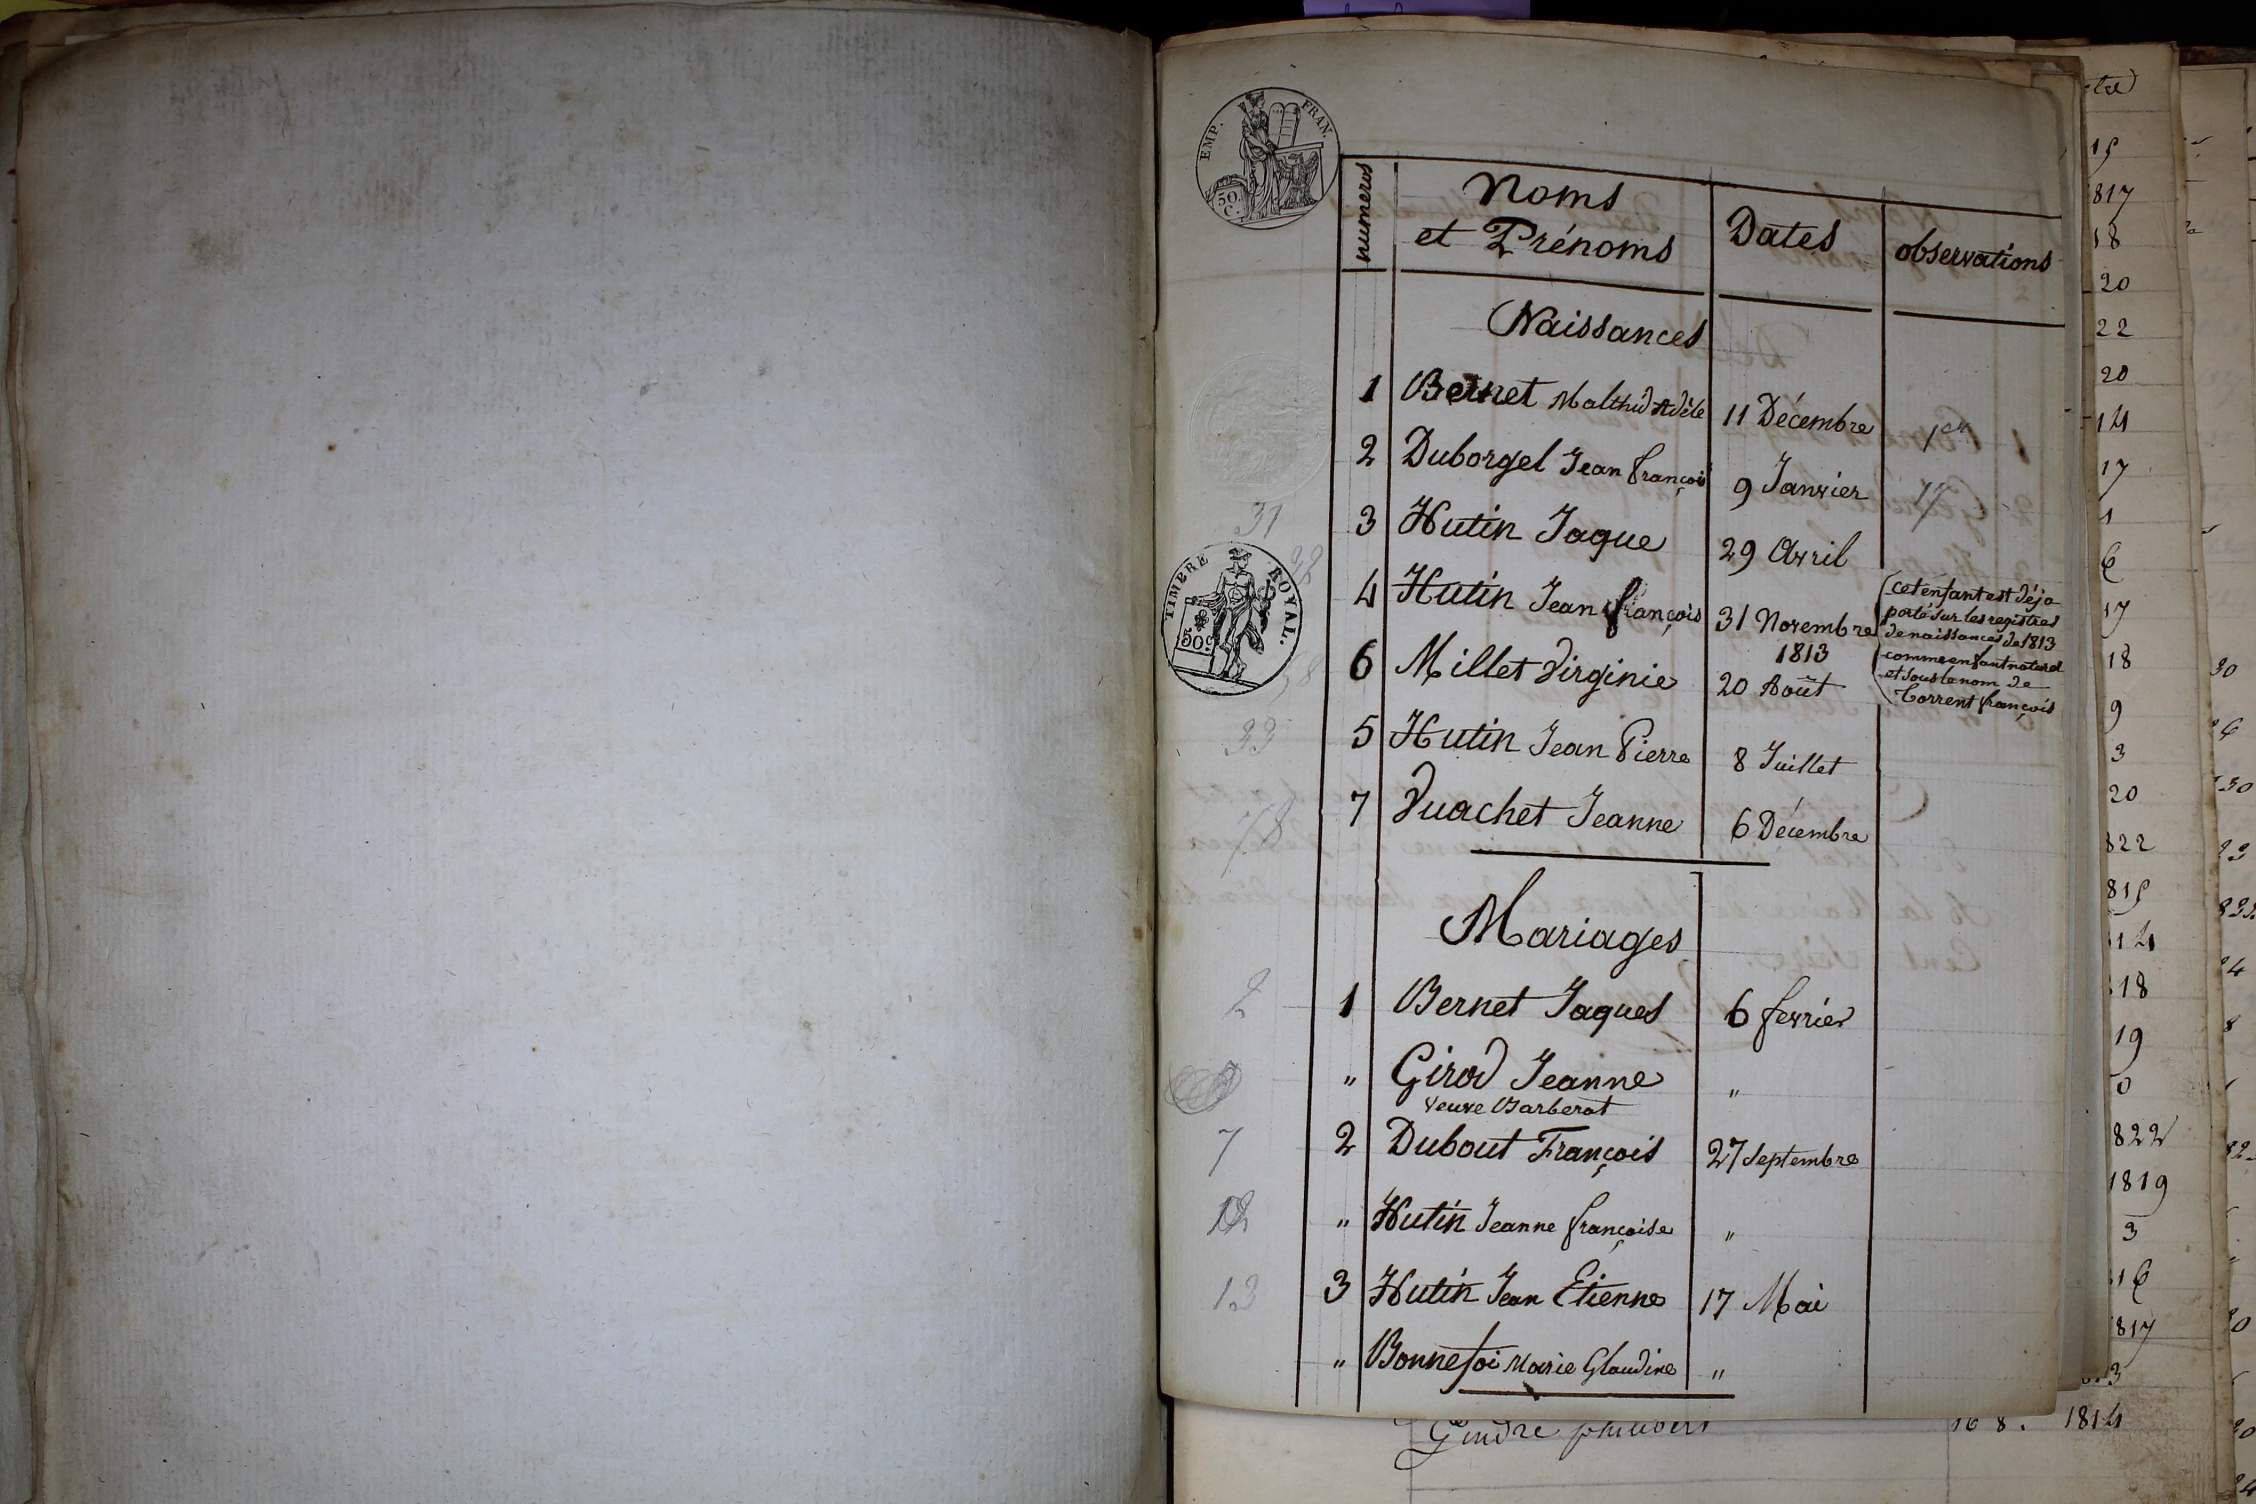 EMP. FRAN.
50 C.
numeros
Noms
et Prénoms
Dates
observations
Naissances
1 Bernet Malthid Adèle 11 Décembre
2 Duborgel Jean françois 9 Janvier
31
3 Hutin Jaque 29 Avril
TIMBRE ROYAL.
50 c
4 Hutin Jean françois 31 Novembre
1813
cet enfant est déja
porté sur les registres
de naissances de 1813
comme enfant naturel
et sous le nom de
Torrent françois
6 Millet Virginie 20 Août
33
5 Hutin Jean Pierre 8 Juillet
78
7 Vuachet Jeanne 6 Décembre
Mariages
2
1 Bernet Jaques 6 fevrier
" Girod Jeanne "
veuve Barberat
7
2 Dubout François 27 Septembre
12
" Hutin Jeanne françoise "
13
3 Hutin Jean Etienne 17 Mai
" Bonnefoi Marie Glaudine "
15
817
18
20
22
20
14
17
1
6
17
18
9
3
20
822
815
14
18
19
0
822
1819
3
16
817
13
Gindre philibert 16 8. 1814